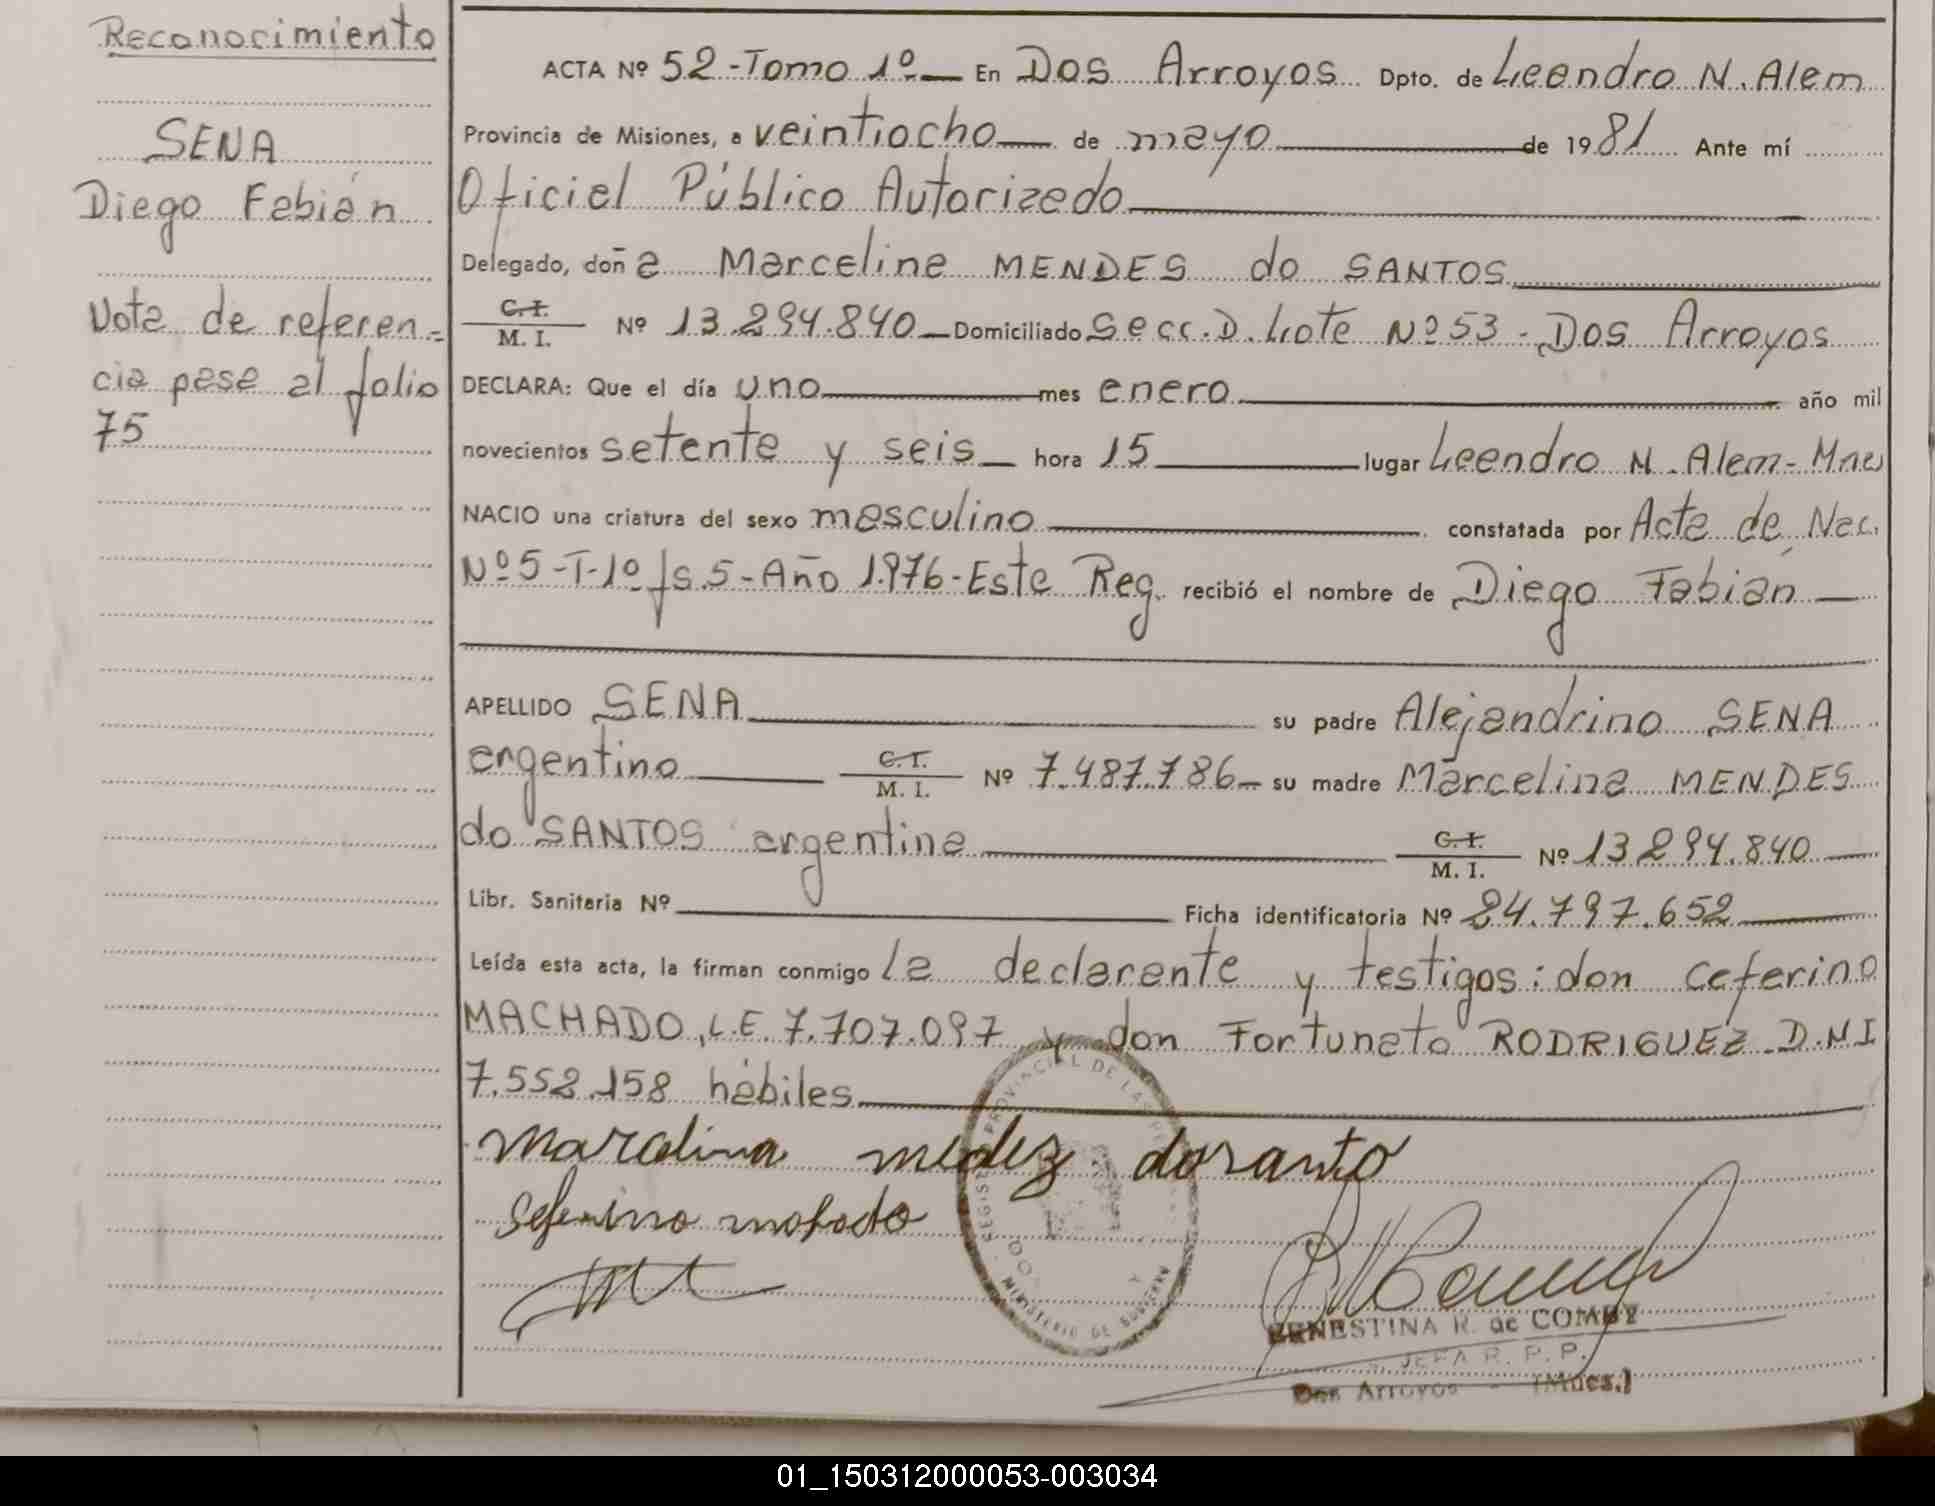 Reconocimiento
SENA
Diego Fabián
Nota de referen-
cia pase al folio
75
ACTA Nº 52-Tomo 1º En Dos Arroyos Dpto. de Leandro N. Alem
Provincia de Misiones, a veintiocho de mayo de 1981 Ante mí
Oficial Público Autorizado
Delegado, doña Marcelina MENDES do SANTOS
C.I.
M. I. Nº 13.294.840 Domiciliado Secc. D. Lote Nº 53 - Dos Arroyos
DECLARA: Que el día uno mes enero año mil
novecientos setenta y seis hora 15 lugar Leandro N. Alem-Mnes
NACIO una criatura del sexo masculino constatada por Acta de Nac.
Nº 5-T-1º fs.5-Año 1.976-Este Reg. recibió el nombre de Diego Fabián
APELLIDO SENA su padre Alejandrino SENA
argentino C.I. M. I. Nº 7.487.786 su madre Marcelina MENDES
do SANTOS argentina C.I. M. I. Nº 13.294.840
Libr. Sanitaria Nº Ficha identificatoria Nº 24.797.652
Leída esta acta, la firman conmigo la declarante y testigos: don Ceferino
MACHADO, L.E. 7.707.097 y don Fortunato RODRIGUEZ D.N.I
7.552.158 hábiles
marcelina medez doranto
Seferino mohado
REGISTRO PROVINCIAL DE LAS
MINISTERIO DE GOBIERNO
ERNESTINA R. de COMBY
JEFA R. P. P.
Dos Arroyos - (Mnes.)
01_150312000053-003034